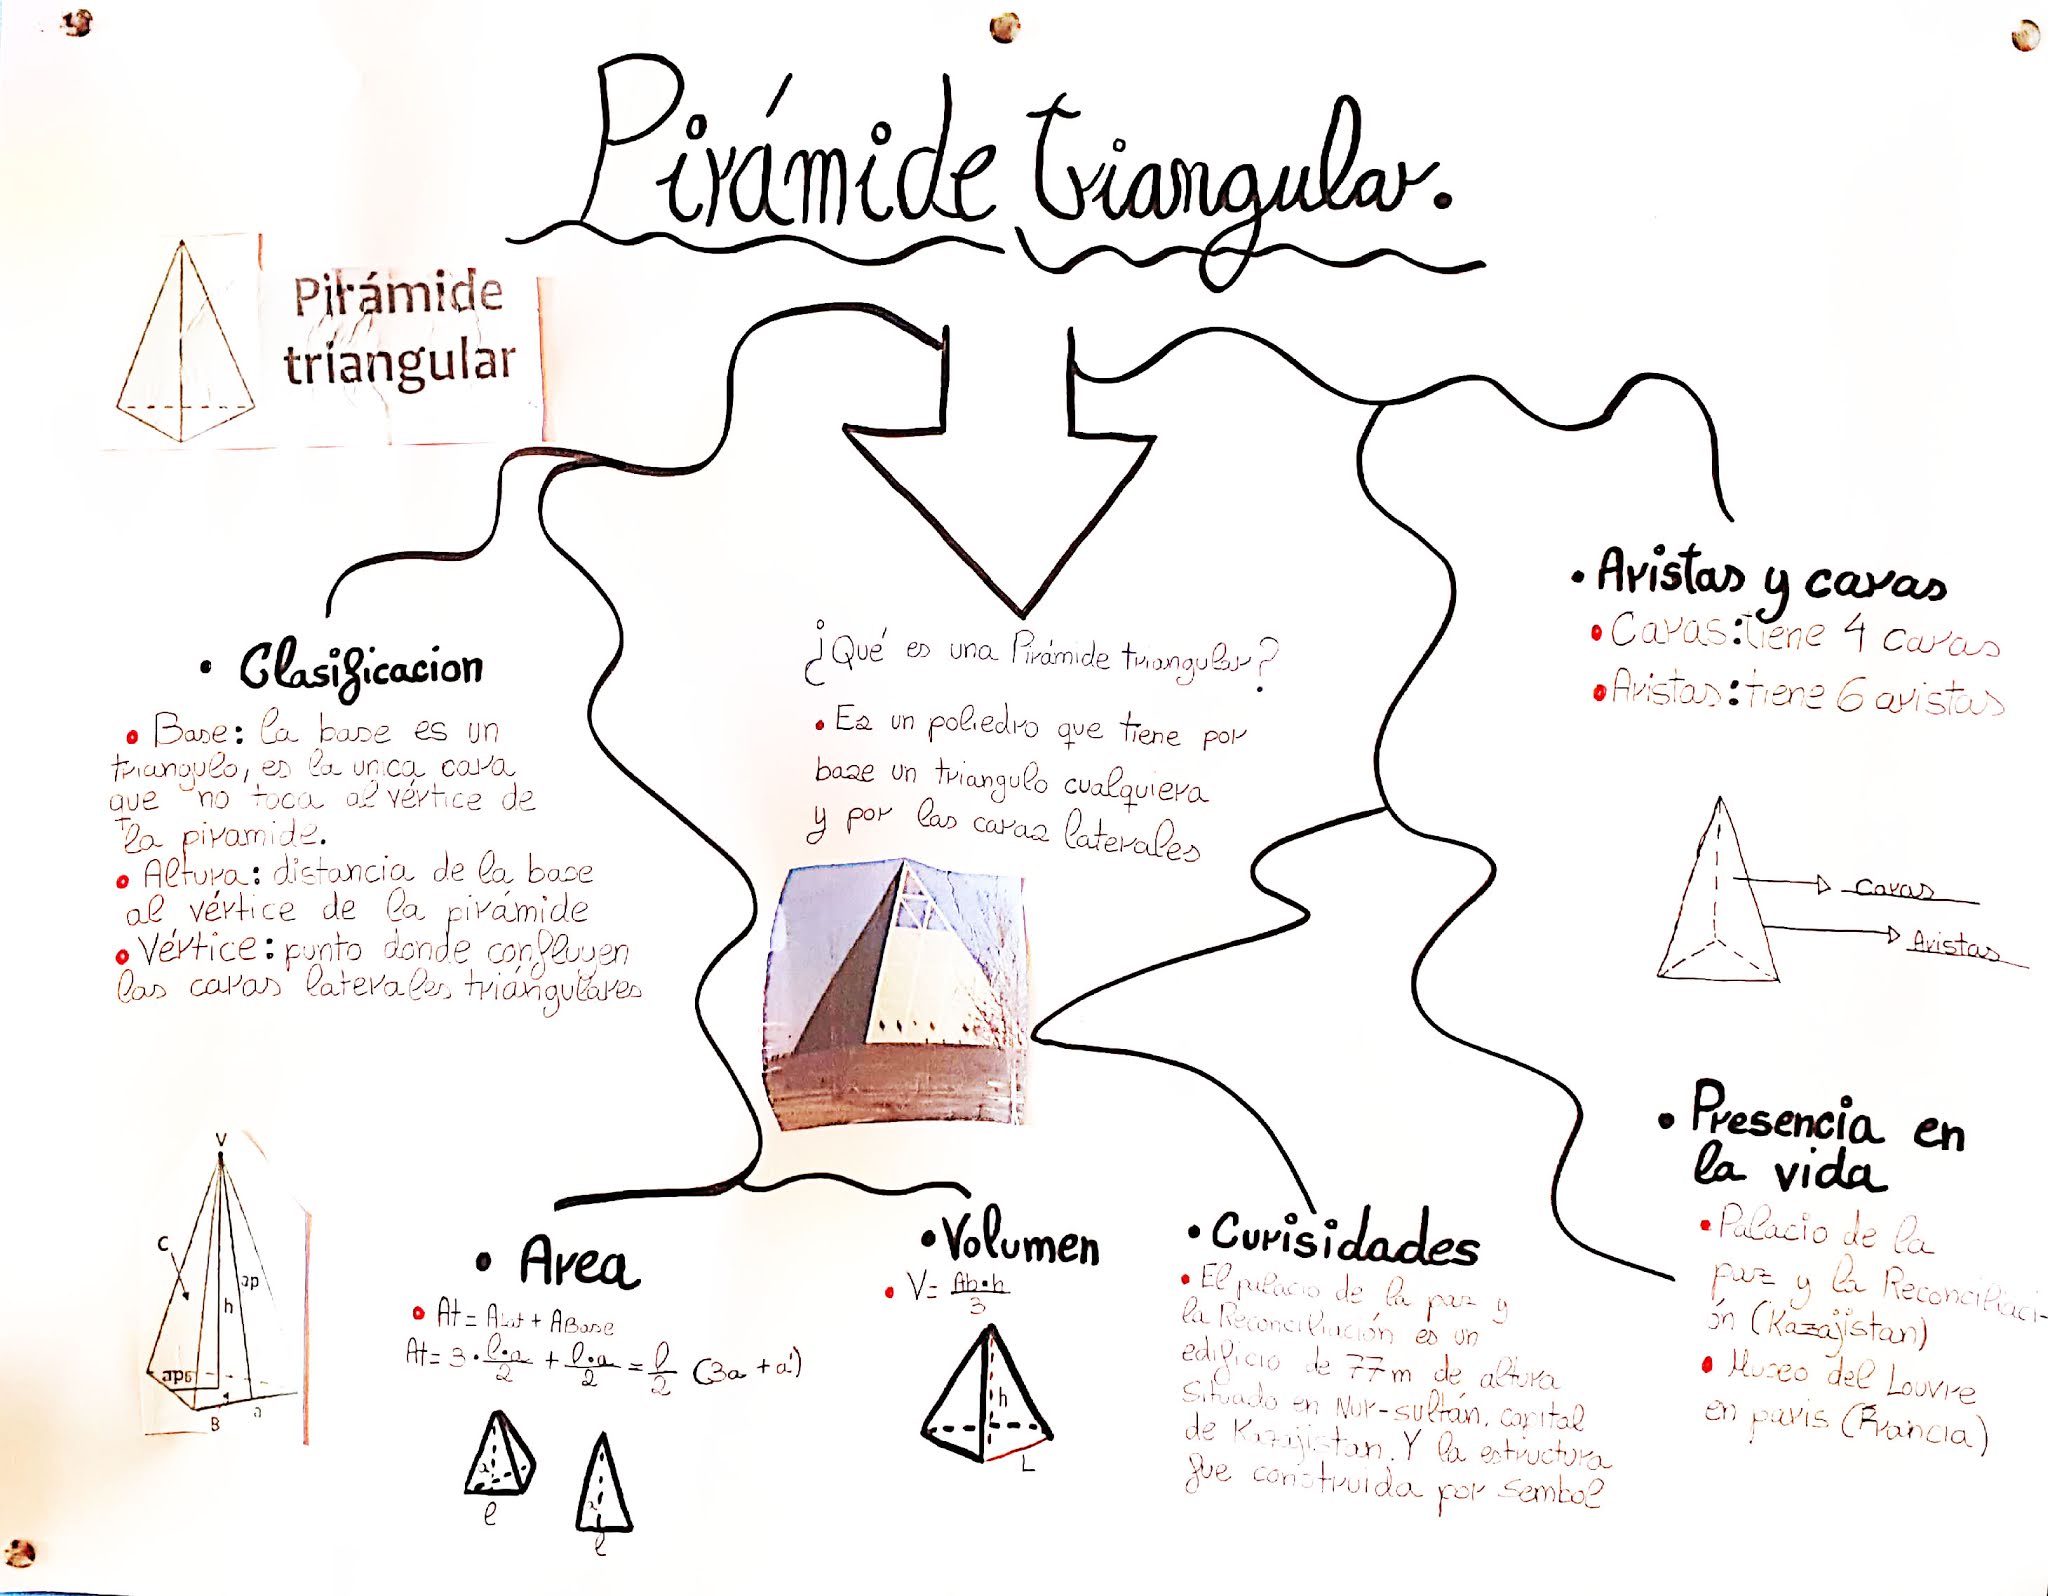 Pirámide triangular.
Pirámide
triangular
• Clasificacion
• Base: la base es un
triangulo, es la unica cara
que no toca al vértice de
la piramide.
• Altura: distancia de la base
al vértice de la pirámide
• Vértice: punto donde confluyen
las caras laterales triángulares
¿Qué es una Pirámide triangular?
• Es un poliedro que tiene por
base un triangulo cualquiera
y por las caras laterales
• Aristas y caras
• Caras: tiene 4 caras
• Aristas: tiene 6 aristas
caras
Aristas
V
C
ap
h
apb
B
a
• Area
• At = ALat + ABase
At = 3 · l·a/2 + l·a/2 = l/2 (3a + a')
l
l
• Volumen
• V = Ab·h/3
h
L
• Curisidades
• El palacio de la paz y
la Reconciliación es un
edificio de 77m de altura
situado en Nur-sultán, capital
de Kazajistan. Y la estructura
fue construida por sembol
• Presencia en
la vida
• Palacio de la
paz y la Reconciliaci-
ón (Kazajistan)
• Museo del Louvre
en paris (Francia)